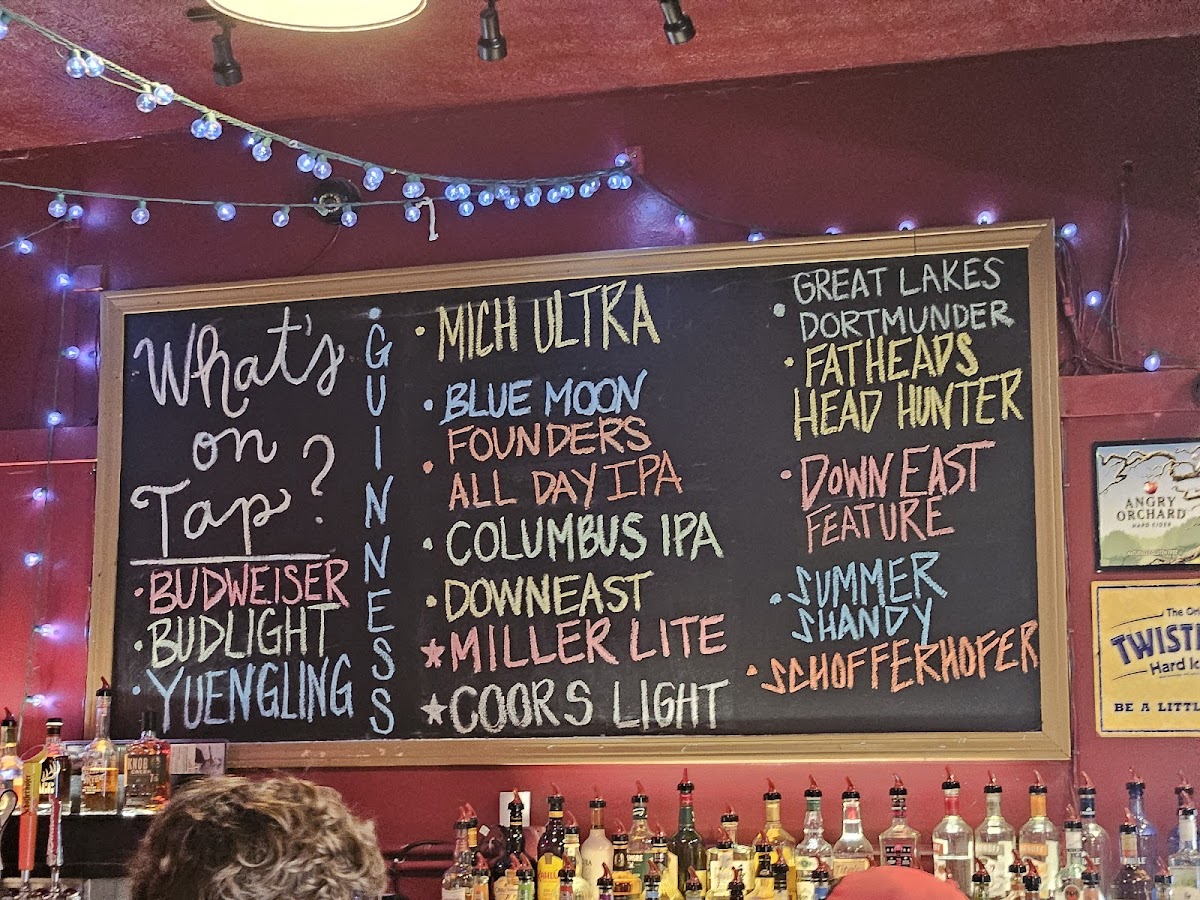 What's
on
Tap?
• BUDWEISER
• BUDLIGHT
• YUENGLING
• GUINNESS
• MICH ULTRA
• BLUE MOON
• FOUNDERS
ALL DAY IPA
• COLUMBUS IPA
• DOWNEAST
★ MILLER LITE
★ COORS LIGHT
• GREAT LAKES
DORTMUNDER
• FATHEADS
HEAD HUNTER
• DOWN EAST
FEATURE
• SUMMER
SHANDY
• SCHOFFERHOFER
ANGRY
ORCHARD
HARD CIDER
TWIST
Hard Ic
BE A LITTL
KNOB